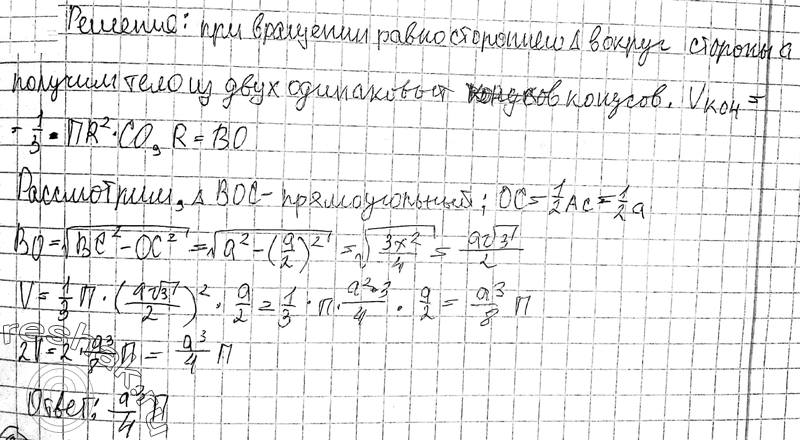 Решение: при вращении равностороннем Δ вокруг стороны a
получим тело из двух одинаковых конусов. Vкон =
= 1/3 · ПR² · CO, R = BO
Рассмотрим, Δ BOC - прямоугольный; OC = 1/2 AC = 1/2 a
BO = √(BC² - OC²) = √(a² - (a/2)²) = √(3x²/4) = a√3/2
V = 1/3 П · (a√3/2)² · a/2 = 1/3 · П · a²·3/4 · a/2 = a³/8 П
2V = 2 · a³/8 П = a³/4 П
Ответ: a³/4 П